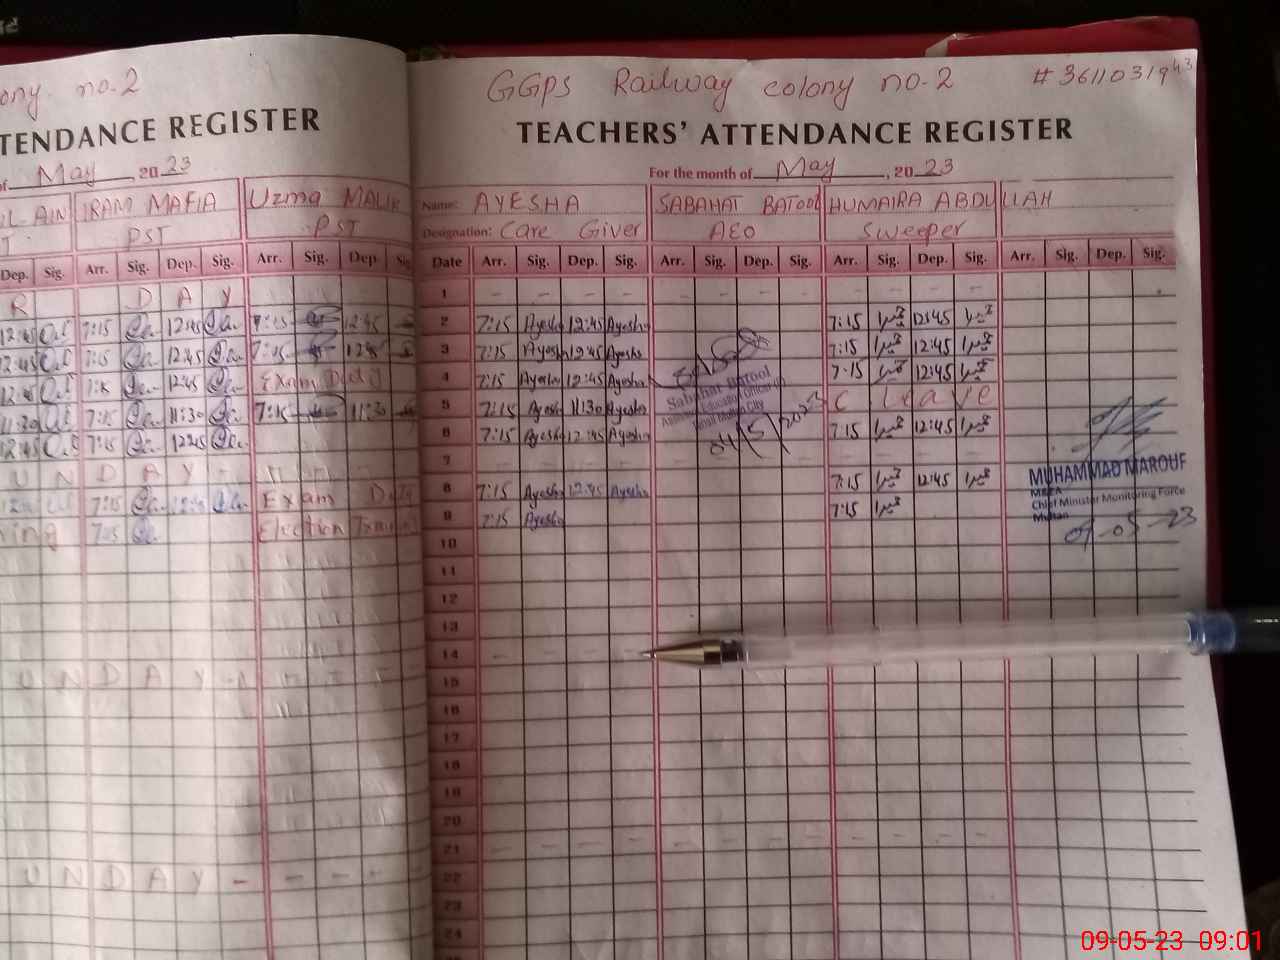 ony. no.2
TENDANCE REGISTER
of May, 20 23
IL-AIN IRAM MAFIA Uzma MALIK
T PST PST
Dep. Sig. Arr. Sig. Dep. Sig. Arr. Sig. Dep. Sig
R D A Y
12:45 7:15 12:45 7:15 12:45
12:45 7:15 12:45 7:15 12:45
12:45 12:45 Exam Duty
11:30 7:15 11:30 7:15 11:30
12:45 7:15 12:45
U N D A Y
7:15 Exam Duty
ning 7:15 Election
U N D A Y
U N D A Y
GGPS Railway colony no.2 # 3611031943
TEACHERS' ATTENDANCE REGISTER
For the month of May, 20 23
Name: AYESHA SABAHAT BATOOL HUMAIRA ABDULLAH
Designation: Care Giver AEO Sweeper
Date Arr. Sig. Dep. Sig. Arr. Sig. Dep. Sig. Arr. Sig. Dep. Sig. Arr. Sig. Dep. Sig.
1
2 7:15 Ayesha 12:45 Ayesha 7:15 12:45
3 7:15 Ayesha 12:45 Ayesha 7:15 12:45
4 7:15 Ayesha 12:45 Ayesha 7:15 12:45
5 7:15 Ayesha 11:30 Ayesha C Leave
6 7:15 Ayesha 12:45 Ayesha 7:15 12:45
7
8 7:15 Ayesha 12:45 Ayesha 7:15 12:45
9 7:15 Ayesha 7:15
10
11
12
13
14
15
16
17
18
19
20
21
22
23
24
Sabahat Batool
Assistant Education Officer
04/5/2023
MUHAMMAD MAROUF
MEA
Chief Minister Monitoring Force
Multan
09-05-23
09-05-23 09:01